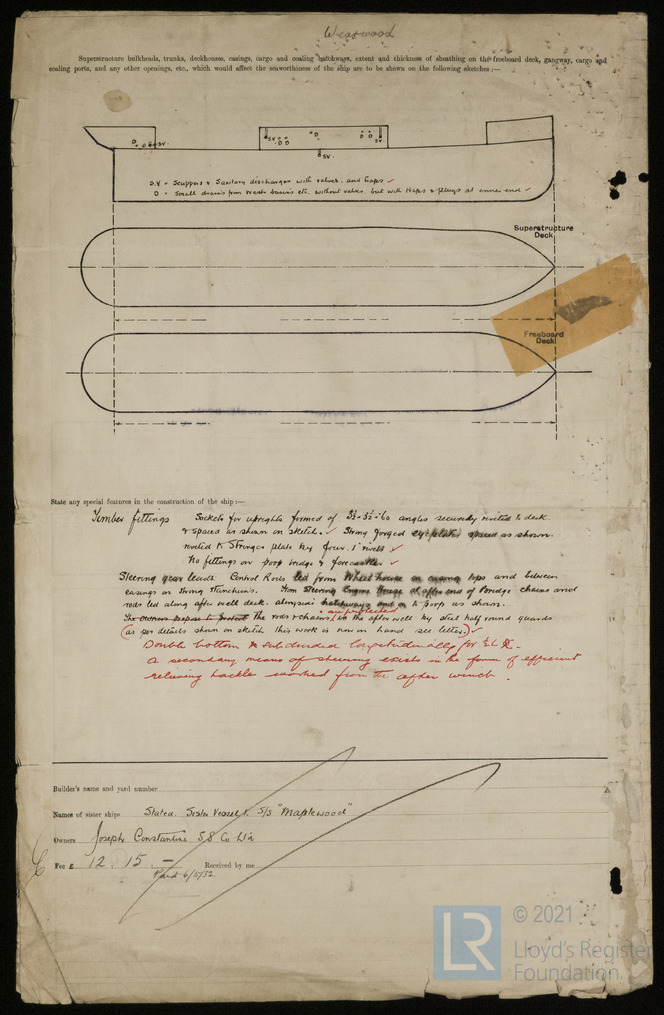 Wearwood
Superstructure bulkheads, trunks, deckhouses, casings, cargo and coaling hatchways, extent and thickness of sheathing on the freeboard deck, gangway, cargo and
coaling ports, and any other openings, etc., which would affect the seaworthiness of the ship are to be shown on the following sketches :—
D.V = Scuppers & Sanitary discharges with valves and traps ✓
D = Small drains from wash basins etc. without valves, but with traps & plugs at inner end ✓
Superstructure
Deck
Freeboard
Deck
State any special features in the construction of the ship :—
Timber fittings Sockets for uprights formed of angles securely riveted to deck
& spaced as shown on sketch. ✓ Strong forged eyeplates spaced as shown
riveted to Stringer plate by four 1" rivets ✓
No fittings on poop bridge & forecastle ✓
Steering gear leads Control Rods led from Wheel house on casing tops and between
casings on strong stanchions. From Steering Engine House at after end of Bridge chains and
rods led along after well deck alongside hatchways and on to poop as shown.
are protected
The owners propose to protect the rods & chains in the after well by steel half round guards
(as per details shown on sketch this work is now in hand see letter.) ✓
Double bottom is subdivided longitudinally for ½ L
A secondary means of steering exists in the form of efficient
relieving tackle worked from the after winch.
Builder's name and yard number
Names of sister ships Stated. Sister Vessel S/S "Maplewood"
Owners Joseph Constantine S.S Co Ltd
Fee £ 12 . 15 . – Received by me
Paid 6/5/32.
LR
© 2021
Lloyd's Register
Foundation